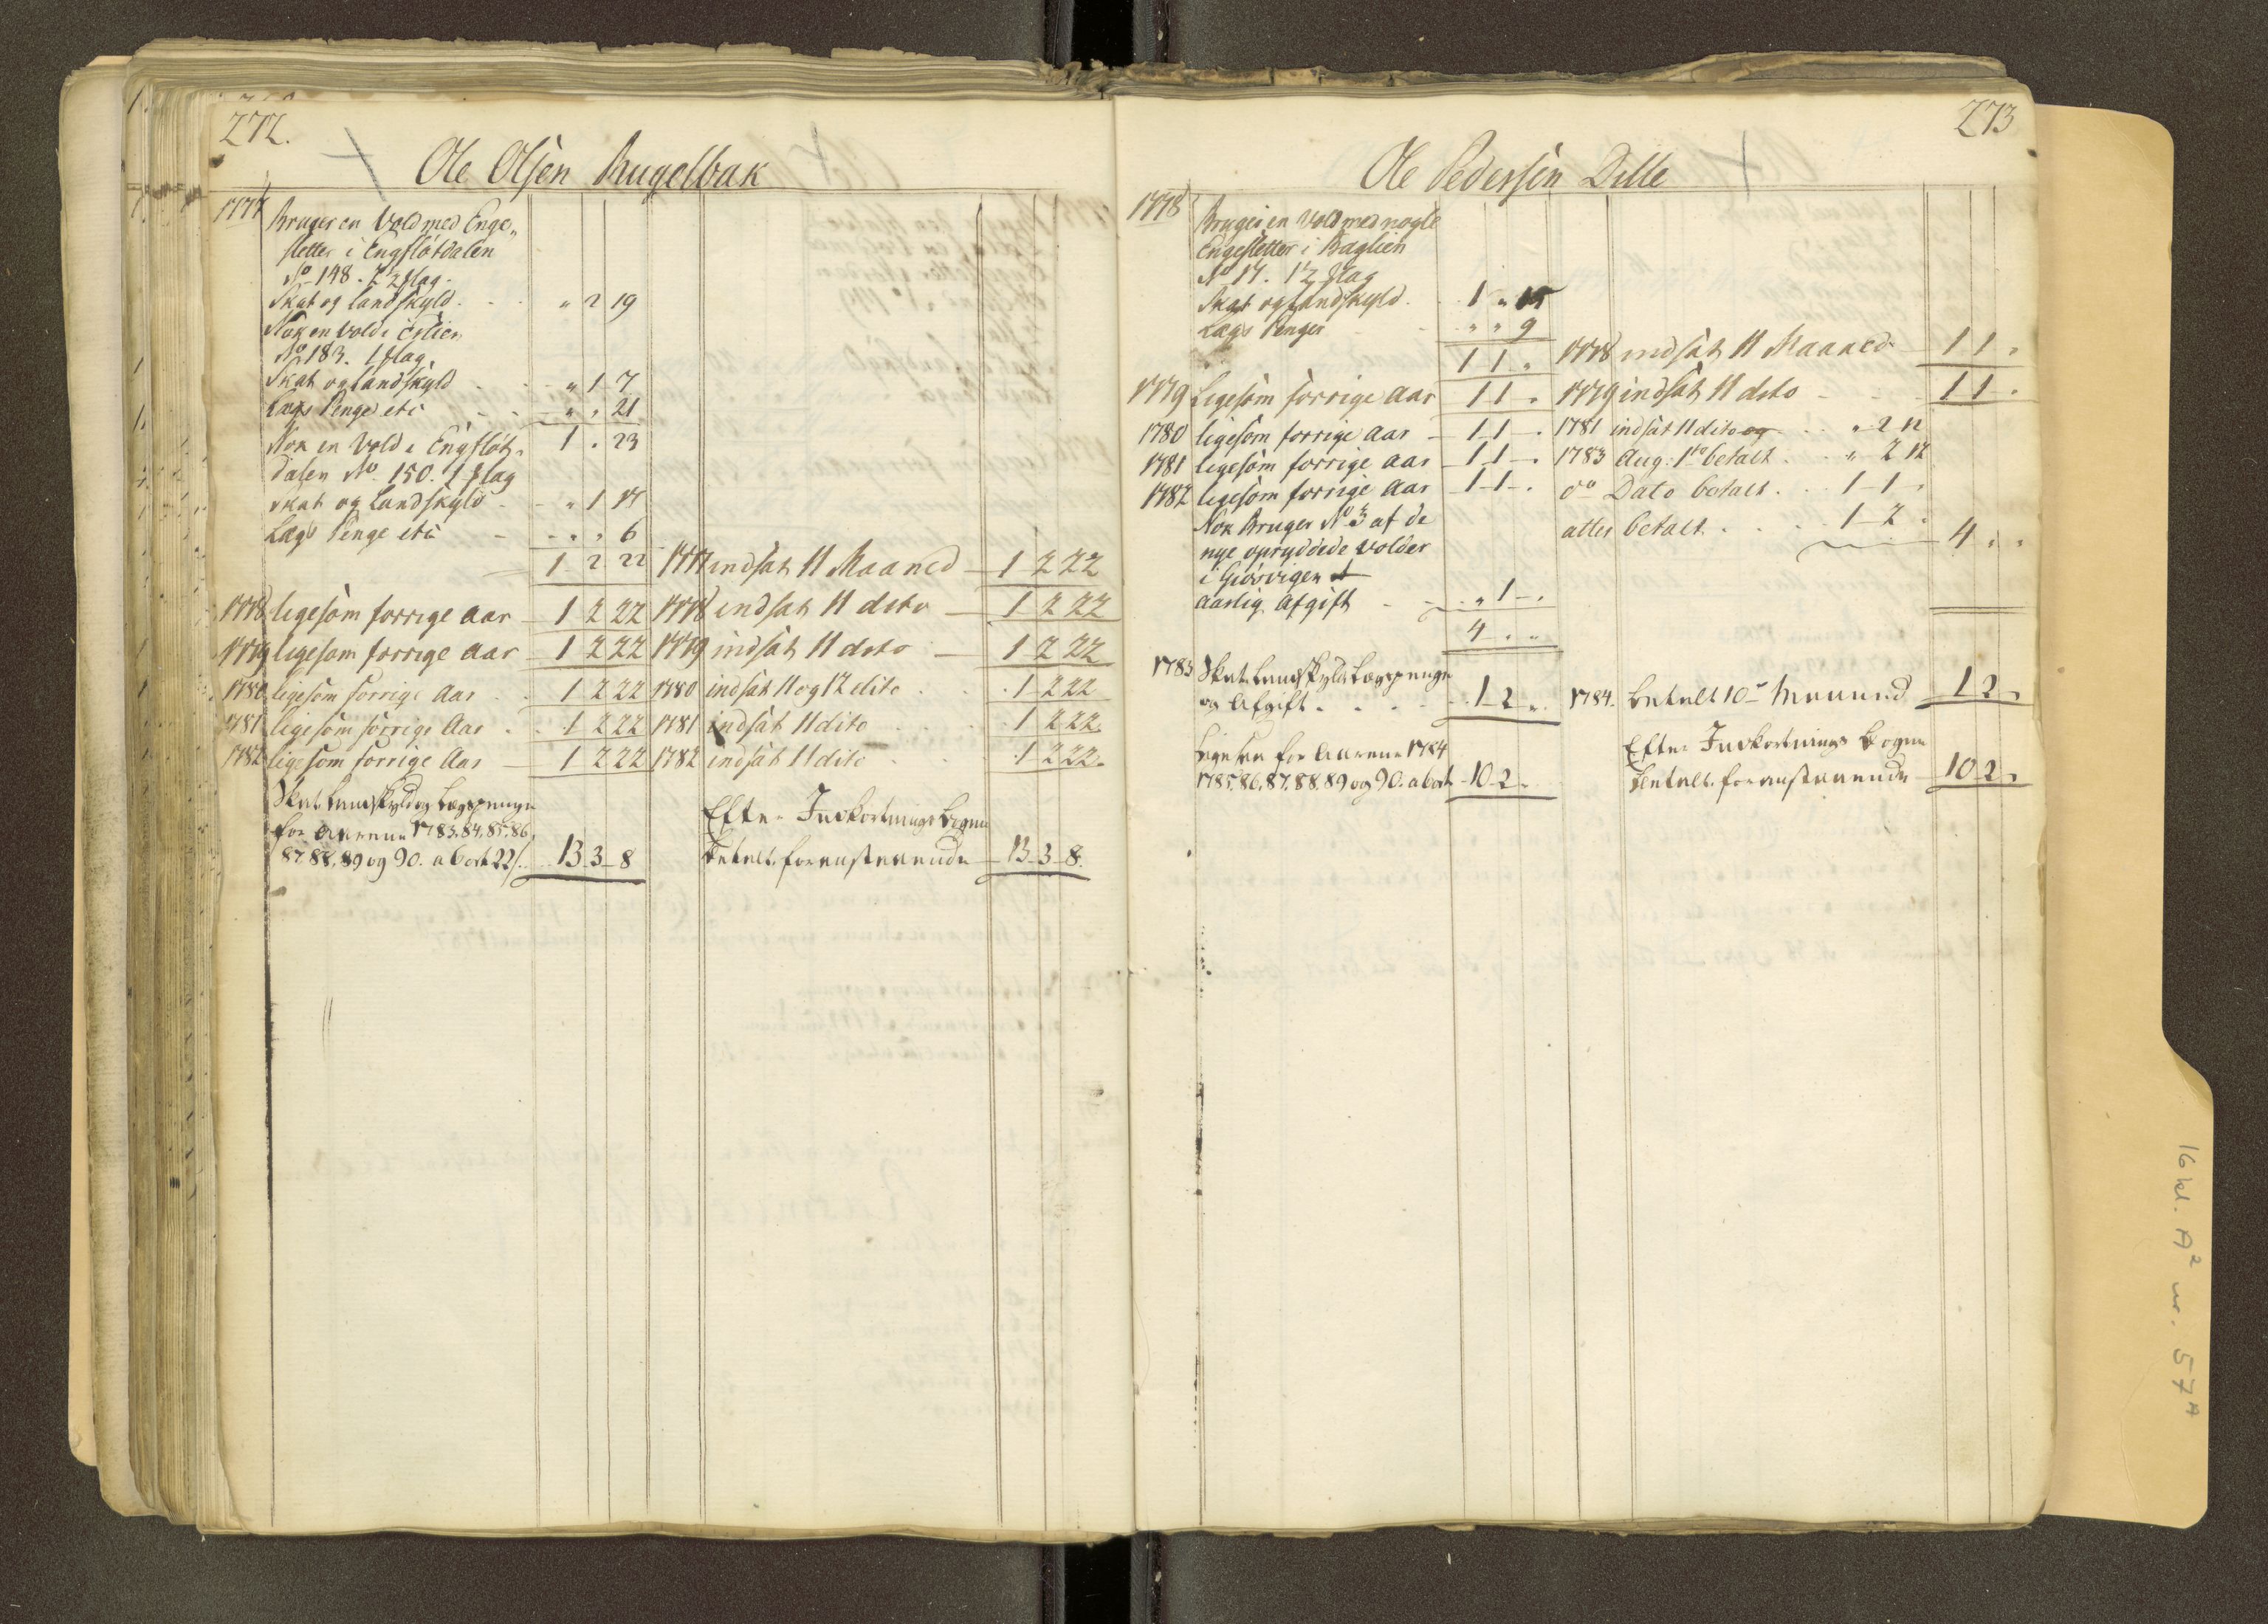 272.
Ole Olsen Rugelbak
1777 Bruger en Vold med Enge„
sletter i Engflötdalen
No 148. 2½ flag.
Skat og Landskyld. . . „ 2 19
Nok en Vold i Eslien
No 183. 1 flag.
Skat og Landskyld . . „ 1 7
Lægs Penge etc . . „ „ 21
1 . 23
Nok en Vold i Engflöt„
dalen No. 150. 1 flag
Skat og Landskyld . . „ 1 17
Lægs Penge etc . . „ „ 6
1 2 22 1777 indsat 11 Maaned 1 2 22
1778 ligesom forrige Aar 1 2 22 1778 indsat 11 dito 1 2 22
1779 ligesom forrige Aar 1 2 22 1779 indsat 11 dito 1 2 22
1780 ligesom forrige Aar 1 2 22 1780 indsat 11 og 12 dito 1 2 22
1781 ligesom forrige Aar 1 2 22 1781 indsat 11 dito 1 2 22
1782 ligesom forrige Aar 1 2 22 1782 indsat 11 dito 1 2 22
Skat Landskyld og Lægspenge
for Aarene 1783. 84. 85. 86.
87. 88. 89 og 90. a 6 ort 22 s. 13 3 8
Efter Indkortnings Bogen
betalt foranstaaende 13 3 8.
273
Ole Pedersen Dille
1778 Bruger en Vold med nogle
Engesletter i Baglien
No 17. 1½ flag
Skat og Landskyld . 1 „ 15
Lægs Penger „ „ 9
1 1 „ 1778 indsat 11 Maaned 1 1 „
1779 Ligesom forrige Aar 1 1 „ 1779 indsat 11 dito 1 1 „
1780 ligesom forrige Aar 1 1 „ 1781 indsat 11 dito og „ 2 12
1781 ligesom forrige Aar 1 1 „ 1783 Aug. 1te betalt „ 2 12
1782 ligesom forrige Aar 1 1 „ do Dato betalt 1 1 „
Nok Bruger No 3 af de
nye opryddede Volder
i Giörvigen
aarlig Afgift „ 1 „
4 „ „
atter betalt 1 2 „ 4 „ „
1783 Skat Landskyld Lægspenge
og Afgift . . . . 1 2 „ 1784. betalt 10de Maaned 1 2 „
Ligesaa for Aarene 1784
1785. 86. 87. 88. 89 og 90. a 6 ort 10 2 „
Efter Indkortnings Bogen
betalt foranstaaende 10 2 „
16 kl. A² nr. 57ᴬ